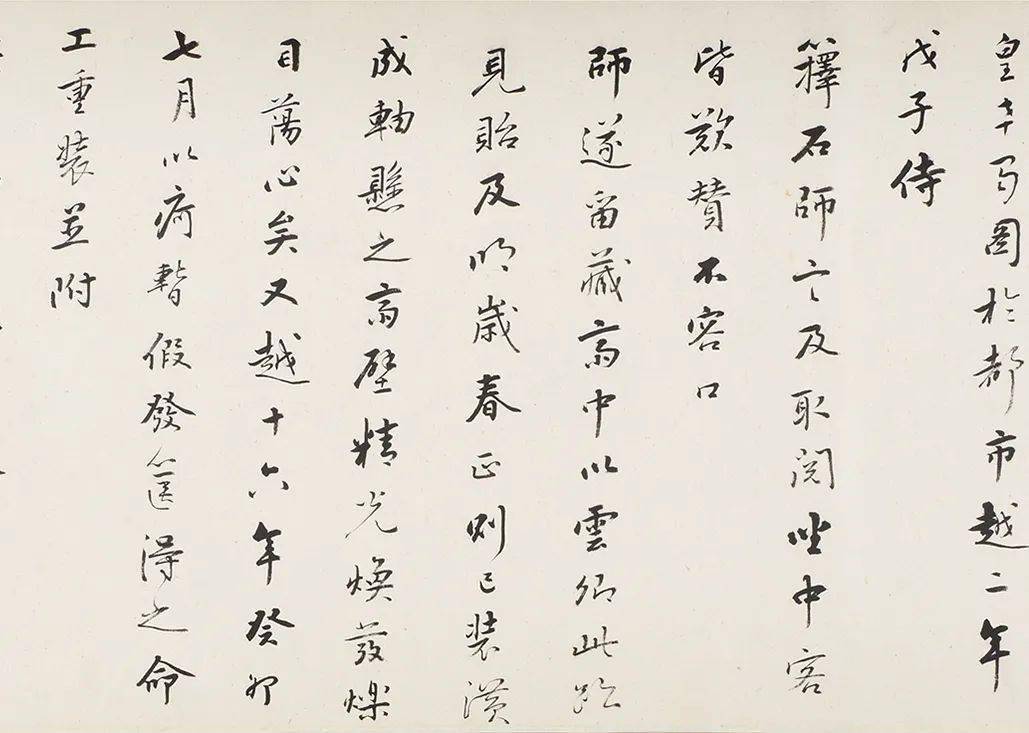 皇圖於都市越二年
戊子侍
籜石師言及取閲坐中客
皆歎賛不容口
師遂留藏齋中以雲卿此跋
見貽及明歲春正則已装潢
成軸懸之齋壁精光煥發爍
目蕩心矣又越十六年癸卯
七月以疴暫假發篋得之命
工重装並附